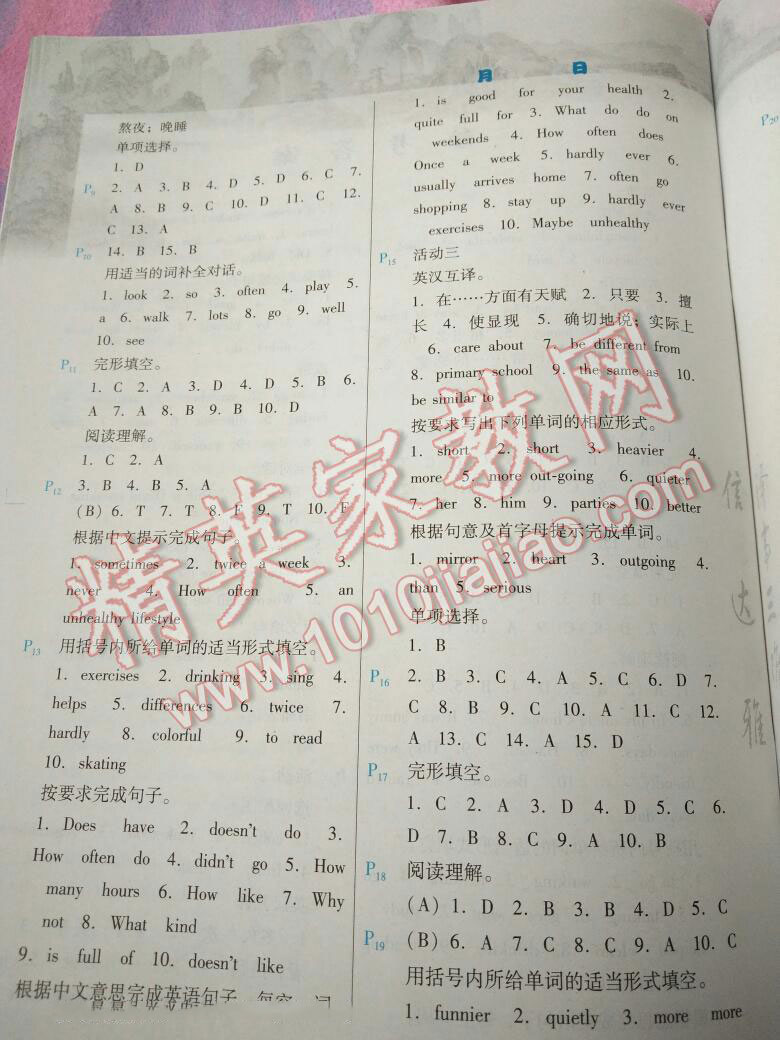 月 日
熬夜；晚睡
单项选择。
1. D
P9 2. A 3. B 4. D 5. D 6. C 7.
A 8. B 9. C 10. D 11. C 12.
C 13. A
P10 14. B 15. B
用适当的词补全对话。
1. look 2. so 3. often 4. play 5.
a 6. walk 7. lots 8. go 9. well
10. see
P11 完形填空。
1. C 2. A 3. D 4. D 5. B 6.
A 7. A 8. B 9. B 10. D
阅读理解。
1. C 2. A
P12 3. B 4. B 5. A
(B) 6. T 7. T 8. F 9. T 10. F
根据中文提示完成句子。
1. sometimes 2. twice a week 3.
never 4. How often 5. an
unhealthy lifestyle
P13 用括号内所给单词的适当形式填空。
1. exercises 2. drinking 3. sing 4.
helps 5. differences 6. twice 7.
hardly 8. colorful 9. to read
10. skating
按要求完成句子。
1. Does have 2. doesn't do 3.
How often do 4. didn't go 5. How
many hours 6. How like 7. Why
not 8. What kind
9. is full of 10. doesn't like
根据中文意思完成英语句子，每空一词
1. is good for your health 2.
quite full for 3. What do do on
weekends 4. How often does
Once a week 5. hardly ever 6.
usually arrives home 7. often go
shopping 8. stay up 9. hardly ever
exercises 10. Maybe unhealthy
P15 活动三
英汉互译。
1. 在……方面有天赋 2. 只要 3. 擅
长 4. 使显现 5. 确切地说；实际上
6. care about 7. be different from
8. primary school 9. the same as 10.
be similar to
按要求写出下列单词的相应形式。
1. short 2. short 3. heavier 4.
more 5. more out-going 6. quieter
7. her 8. him 9. parties 10. better
根据句意及首字母提示完成单词。
1. mirror 2. heart 3. outgoing 4.
than 5. serious
单项选择。
1. B
P16 2. B 3. C 4. A 5. C 6. D 7.
C 8. B 9. C 10. A 11. C 12.
A 13. C 14. A 15. D
P17 完形填空。
1. C 2. A 3. D 4. D 5. C 6.
D 7. B 8. C 9. A 10. B
P18 阅读理解。
(A) 1. D 2. B 3. B 4. D 5. C
P19 (B) 6. A 7. C 8. C 9. A 10. C
用括号内所给单词的适当形式填空。
1. funnier 2. quietly 3. more more
P20
信
达
雅
精英家教网
www.1010jiajiao.com